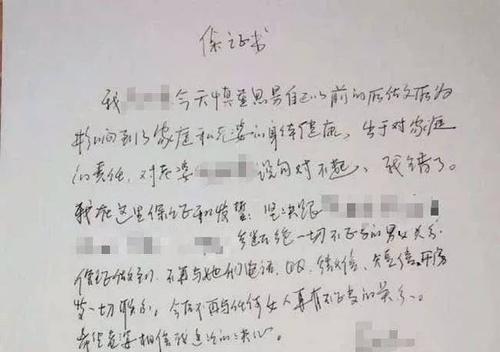 保证书
我 今天慎重思考自己以前的所作所为
影响到了家庭和老婆的身体健康, 出于对家庭
的责任, 对老婆 说句对不起, 我错了。
我在这里保证和发誓: 坚决跟
断绝一切不正当的男女关系
保证做到不再与她们电话, QQ, 微信, 短信, 开房
等一切联系, 今后不再与任何女人再有不正当的关系。
希望老婆相信我这次的决心。